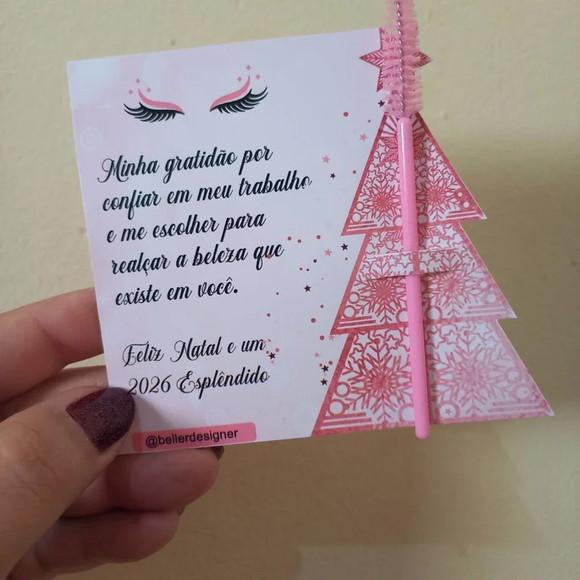 Minha gratidão por
confiar em meu trabalho
e me escolher para
realçar a beleza que
existe em você.
Feliz Natal e um
2026 Esplêndido
@bellerdesigner